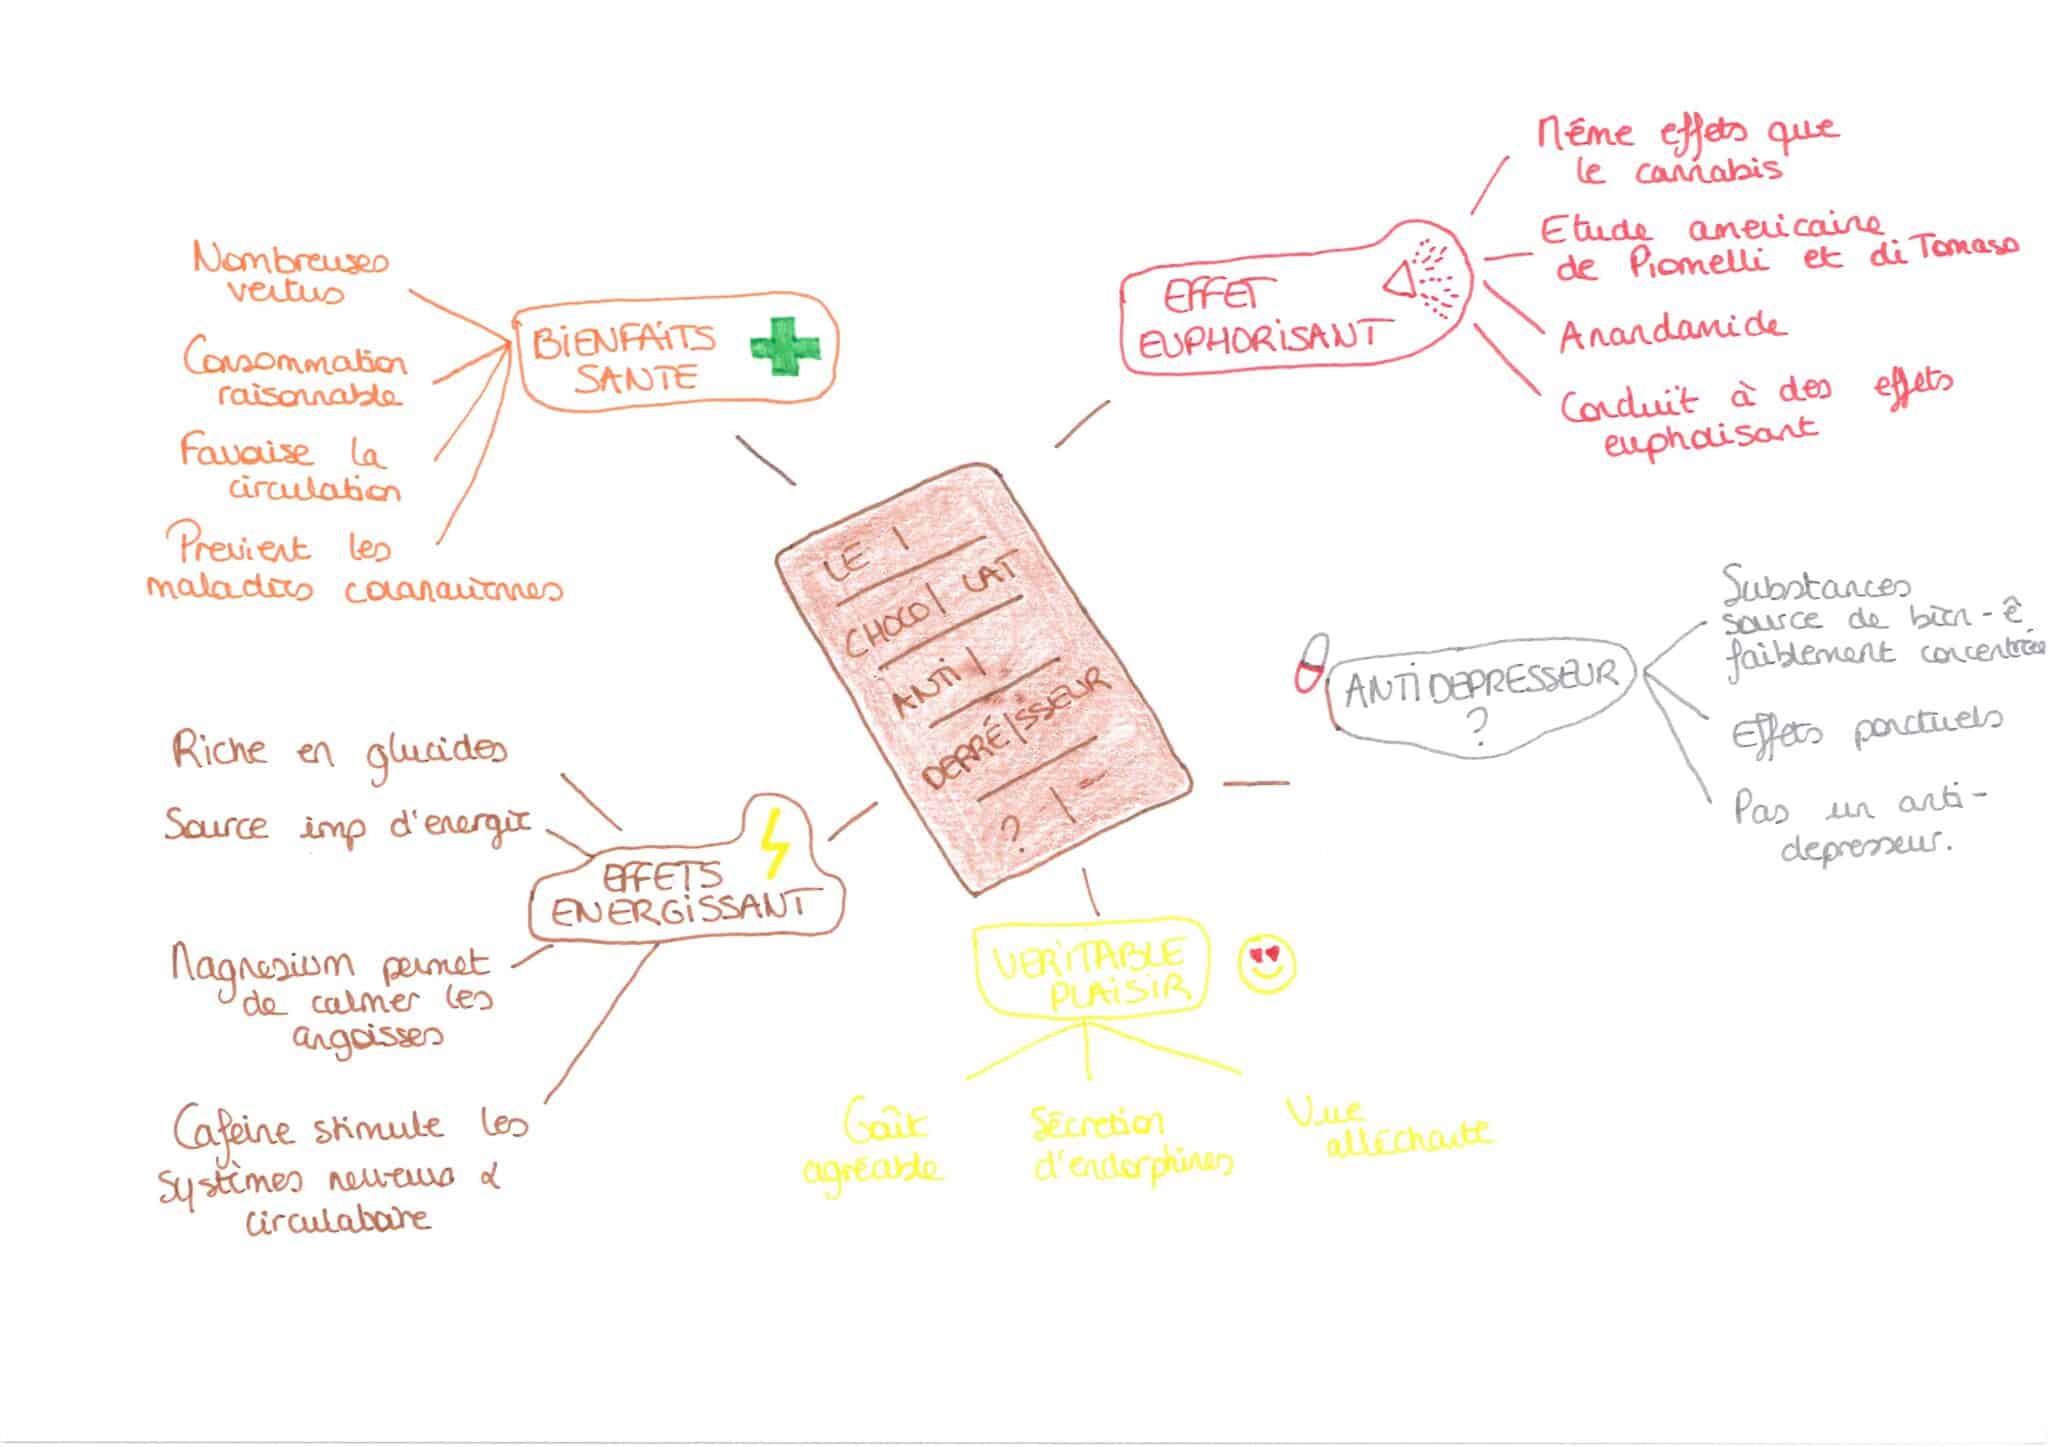 LE
CHOCOLAT
ANTI
DEPRÉSSEUR
?
BIENFAITS
SANTE
Nombreuses
vertus
Consommation
raisonnable
Favorise la
circulation
Previent les
maladies coronariennes
EFFET
EUPHORISANT
Même effets que
le cannabis
Etude americaine
de Piomelli et di Tomaso
Anandamide
Conduit à des effets
euphorisant
ANTIDEPRESSEUR
?
Substances
source de bien-ê
faiblement concentrée
Effets ponctuels
Pas un anti-
depresseur.
VERITABLE
PLAISIR
Goût
agréable
Sécretion
d'endorphines
Vue
alléchante
EFFETS
ENERGISSANT
Riche en glucides
Source imp d'energie
Magnesium permet
de calmer les
angoisses
Caféine stimule les
systèmes nerveux &
circulatoire